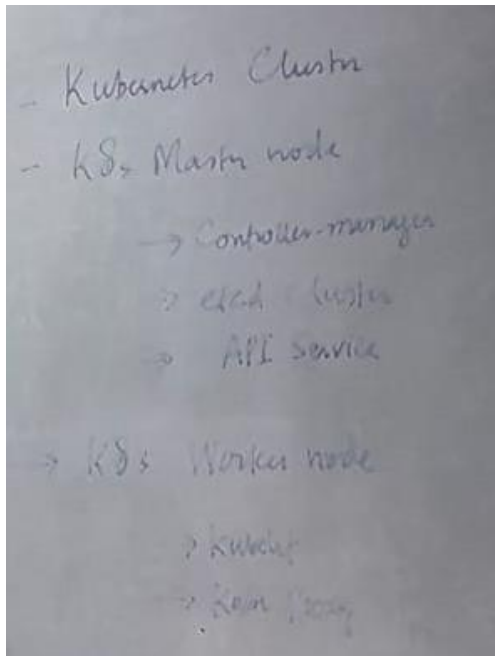 - Kubernetes Cluster
- K8s Master node
→ Controller-manager
→ etcd cluster
→ API Service
→ K8s Worker node
→ Kubelet
→ Proxy